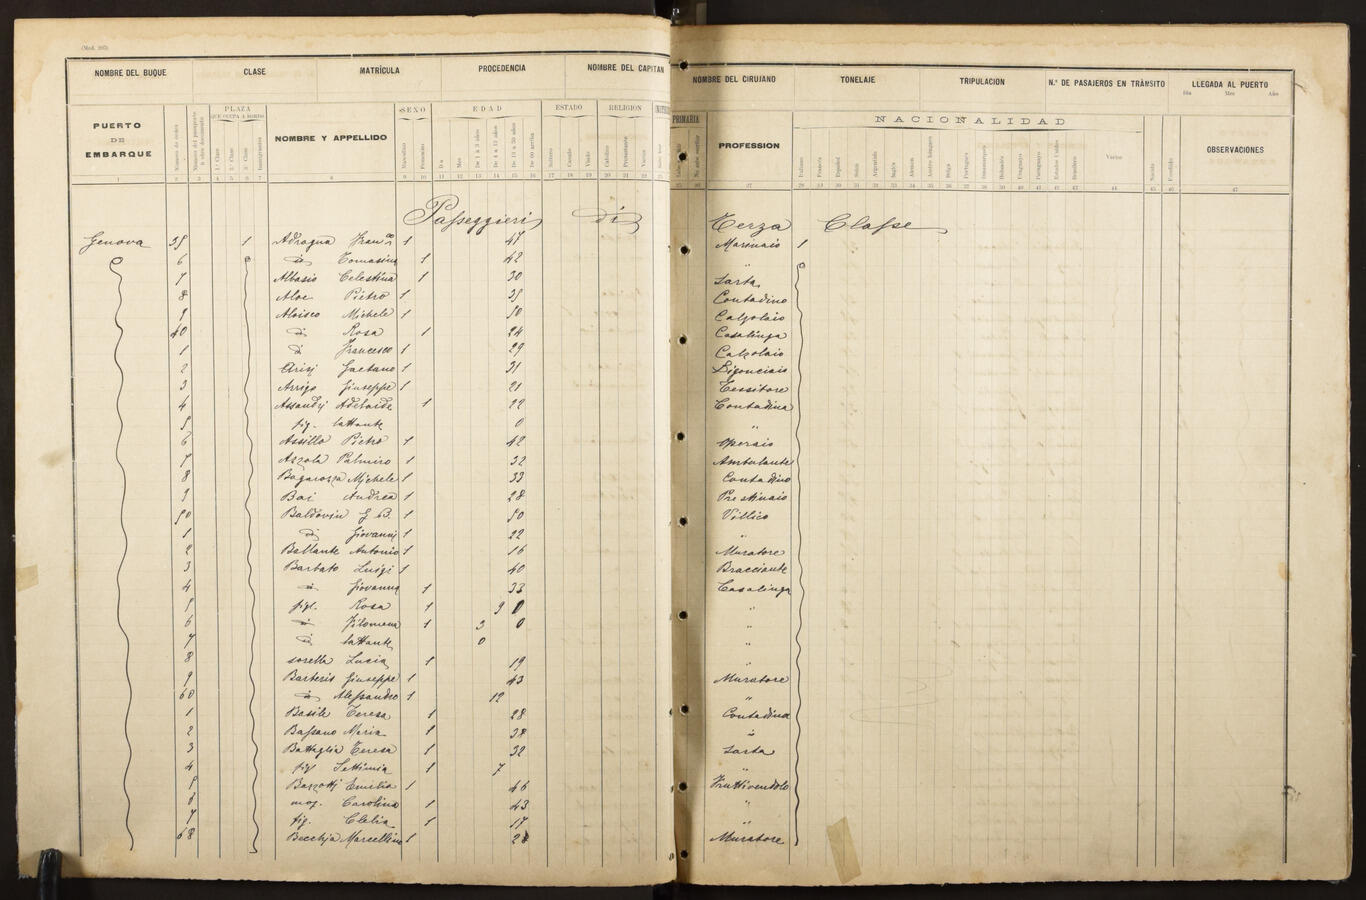 (Mod. 205)
NOMBRE DEL BUQUE CLASE MATRÍCULA PROCEDENCIA NOMBRE DEL CAPITAN NOMBRE DEL CIRUJANO TONELAJE TRIPULACION N.º DE PASAJEROS EN TRÁNSITO LLEGADA AL PUERTO
Día Mes Año
PUERTO DE EMBARQUE
Número de orden
PLAZA QUE OCUPA A BORDO
1.ª Clase 2.ª Clase 3.ª Clase Inmigrantes
NOMBRE Y APPELLIDO
SEXO
Masculino Femenino
EDAD
Dia Mes De 1 a 3 años De 4 a 12 años De 13 a 59 años De 60 arriba
ESTADO
Soltero Casado Viudo
RELIGION
Católico Protestante Varios
PRIMARIA
PROFESSION
NACIONALIDAD
Italiano Francés Español Suizo Argentino Inglés Aleman Austro húngaro Belga Portugués Dinamarqués Holandés Uruguayo Paraguayo Estados Unidos Brasilero Varios
OBSERVACIONES
Passeggieri di Terza Classe
Genova 35 1 Adragna Franco 1 47 Marinaio 1
6 id Tomasina 1 42 "
7 Albasio Celestina 1 30 Sarta
8 Aloe Pietro 1 35 Contadino
9 Aloisco Michele 1 50 Calzolaio
40 di Rosa 1 24 Casalinga
1 di Francesco 1 29 Calzolaio
2 Arisi Gaetano 1 31
3 Arrigo Giuseppe 1 21 Tessitore
4 Assandri Adelaide 1 22 Contadina
5 fig. lattante 0 "
6 Assillo Pietro 1 42 Operaio
7 Azzola Palmiro 1 32 Ambulante
8 Bagarozza Michele 1 33 Contadino
9 Bai Andrea 1 28 Prestinaio
50 Baldovin G B. 1 50 Villico
1 di Giovanni 1 22 "
2 Ballante Antonio 1 16 Muratore
3 Barbato Luigi 1 40 Bracciante
4 id Giovanna 1 33 Casalinga
5 figl. Rosa 1 9 "
6 id Filomena 1 3 0 "
7 id lattante 0 "
8 sorella Lucia 1 19 "
9 Barteris Giuseppe 1 43 Muratore
60 id Alessandro 1 12 "
1 Basile Teresa 1 28 Contadina
2 Bassano Maria 1 38 "
3 Battaglia Teresa 1 32 Sarta
4 figl Settimia 1 7 "
5 Bazzotti Emilia 1 46 Fruttivendolo
6 mog. Carolina 1 43 "
7 fig. Clelia 1 17 "
68 Becchja Marcellino 1 28 Muratore